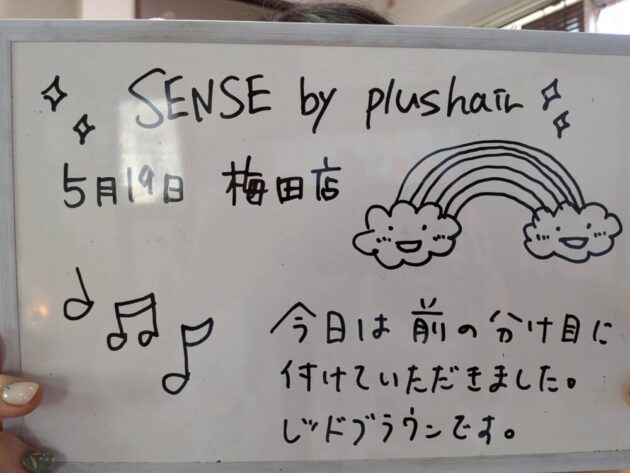 SENSE by plushair
5月19日 梅田店
今日は前の分け目に
付けていただきました。
レッドブラウンです。